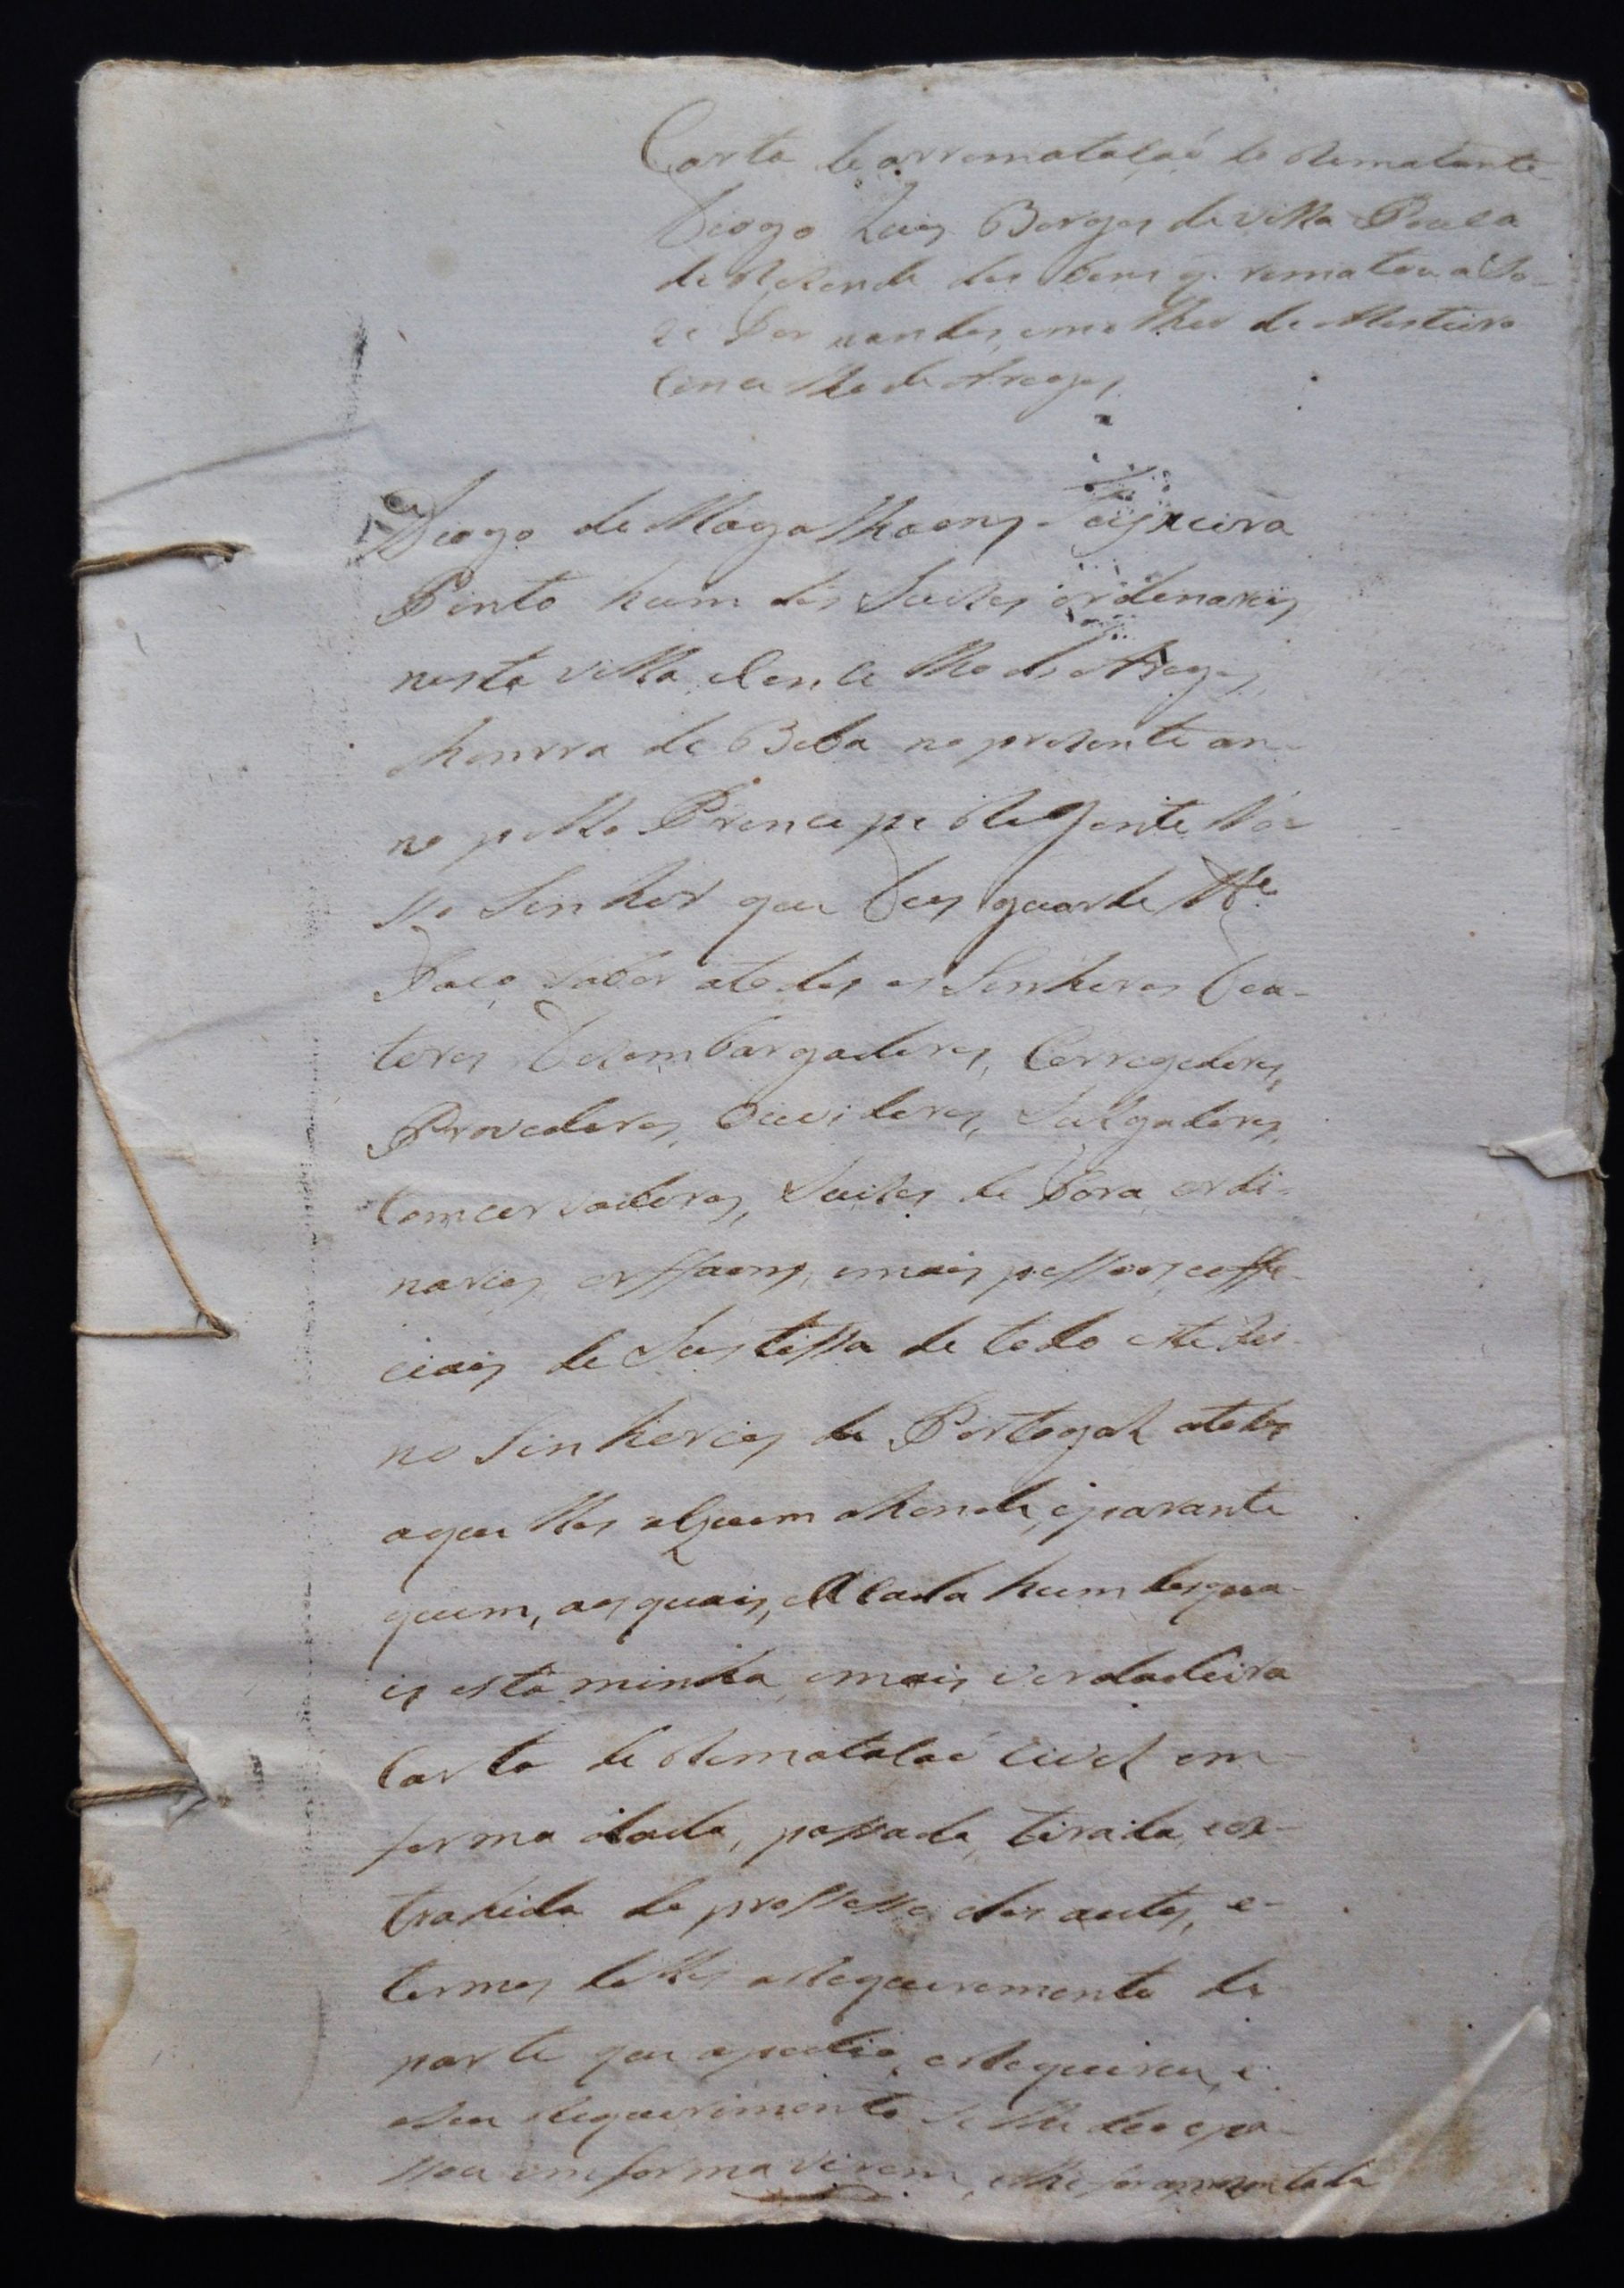 Carta de arrematasaó do Rematante
Diogo Luis Borges de villa Pouca
de Rezende dos bens q. rematou a Jo-
ze Fernandes, emolher de Mosteiro
Concelho de Aregos
Diogo de Magalhaens Teixeira
Pinto hum dos Juizes ordenarios
nesta villa e Concelho de Aregos
honrra de Beba no prezente an-
no pello Principe Regente No-
sso Senhor que Deus guarde &ª
Faço saber atodos os Senhores Dou-
tores Dezembargadores, Corregedores,
Provedores, Ouvidores, Julgadores,
Comcervadores, Juizes de Fora, ordi-
narios, orffaons, emais pessoas eoffe-
ciais de Justissa de todo este Rei-
no Senhorios de Portogal atodos
aquelles aQuem ahonde, eparante
quem, aos quais, e A Cada hum dosqua-
is esta minha, emais verdadeira
Carta de Rematasaó civel em
forma dada, passada, tirada, eex-
trahida do prossesso dos autos, e-
termos delles a Requeremento da
parte que apedio, eRequireu, e
Seu Requerimento Se lhe deo epa-
ssou emforma virem, elhe for aprezentada